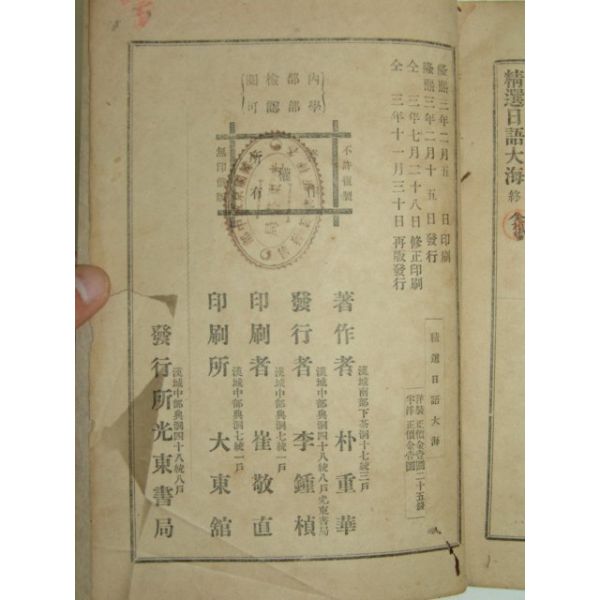 精選日語大海 終
隆熙三年二月五 日印刷
隆熙三年二月十五日發行
仝 三年七月二十八日修正印刷
仝 三年十一月三十日再版發行
內部檢閱
學部認可
不許複製
著作權
所有
無印僞製
精選日語大海
洋裝 正價金壹圜二十五錢
半洋 正價金壹圜
漢城南部下茶洞十七統三戶
著作者 朴重華
漢城中部典洞四十八統八戶光東書局
發行者 李鍾楨
漢城中部典洞七統一戶
印刷者 崔敬直
漢城中部典洞七統一戶
印刷所 大東舘
漢城中部典洞四十八統八戶
發行所光東書局